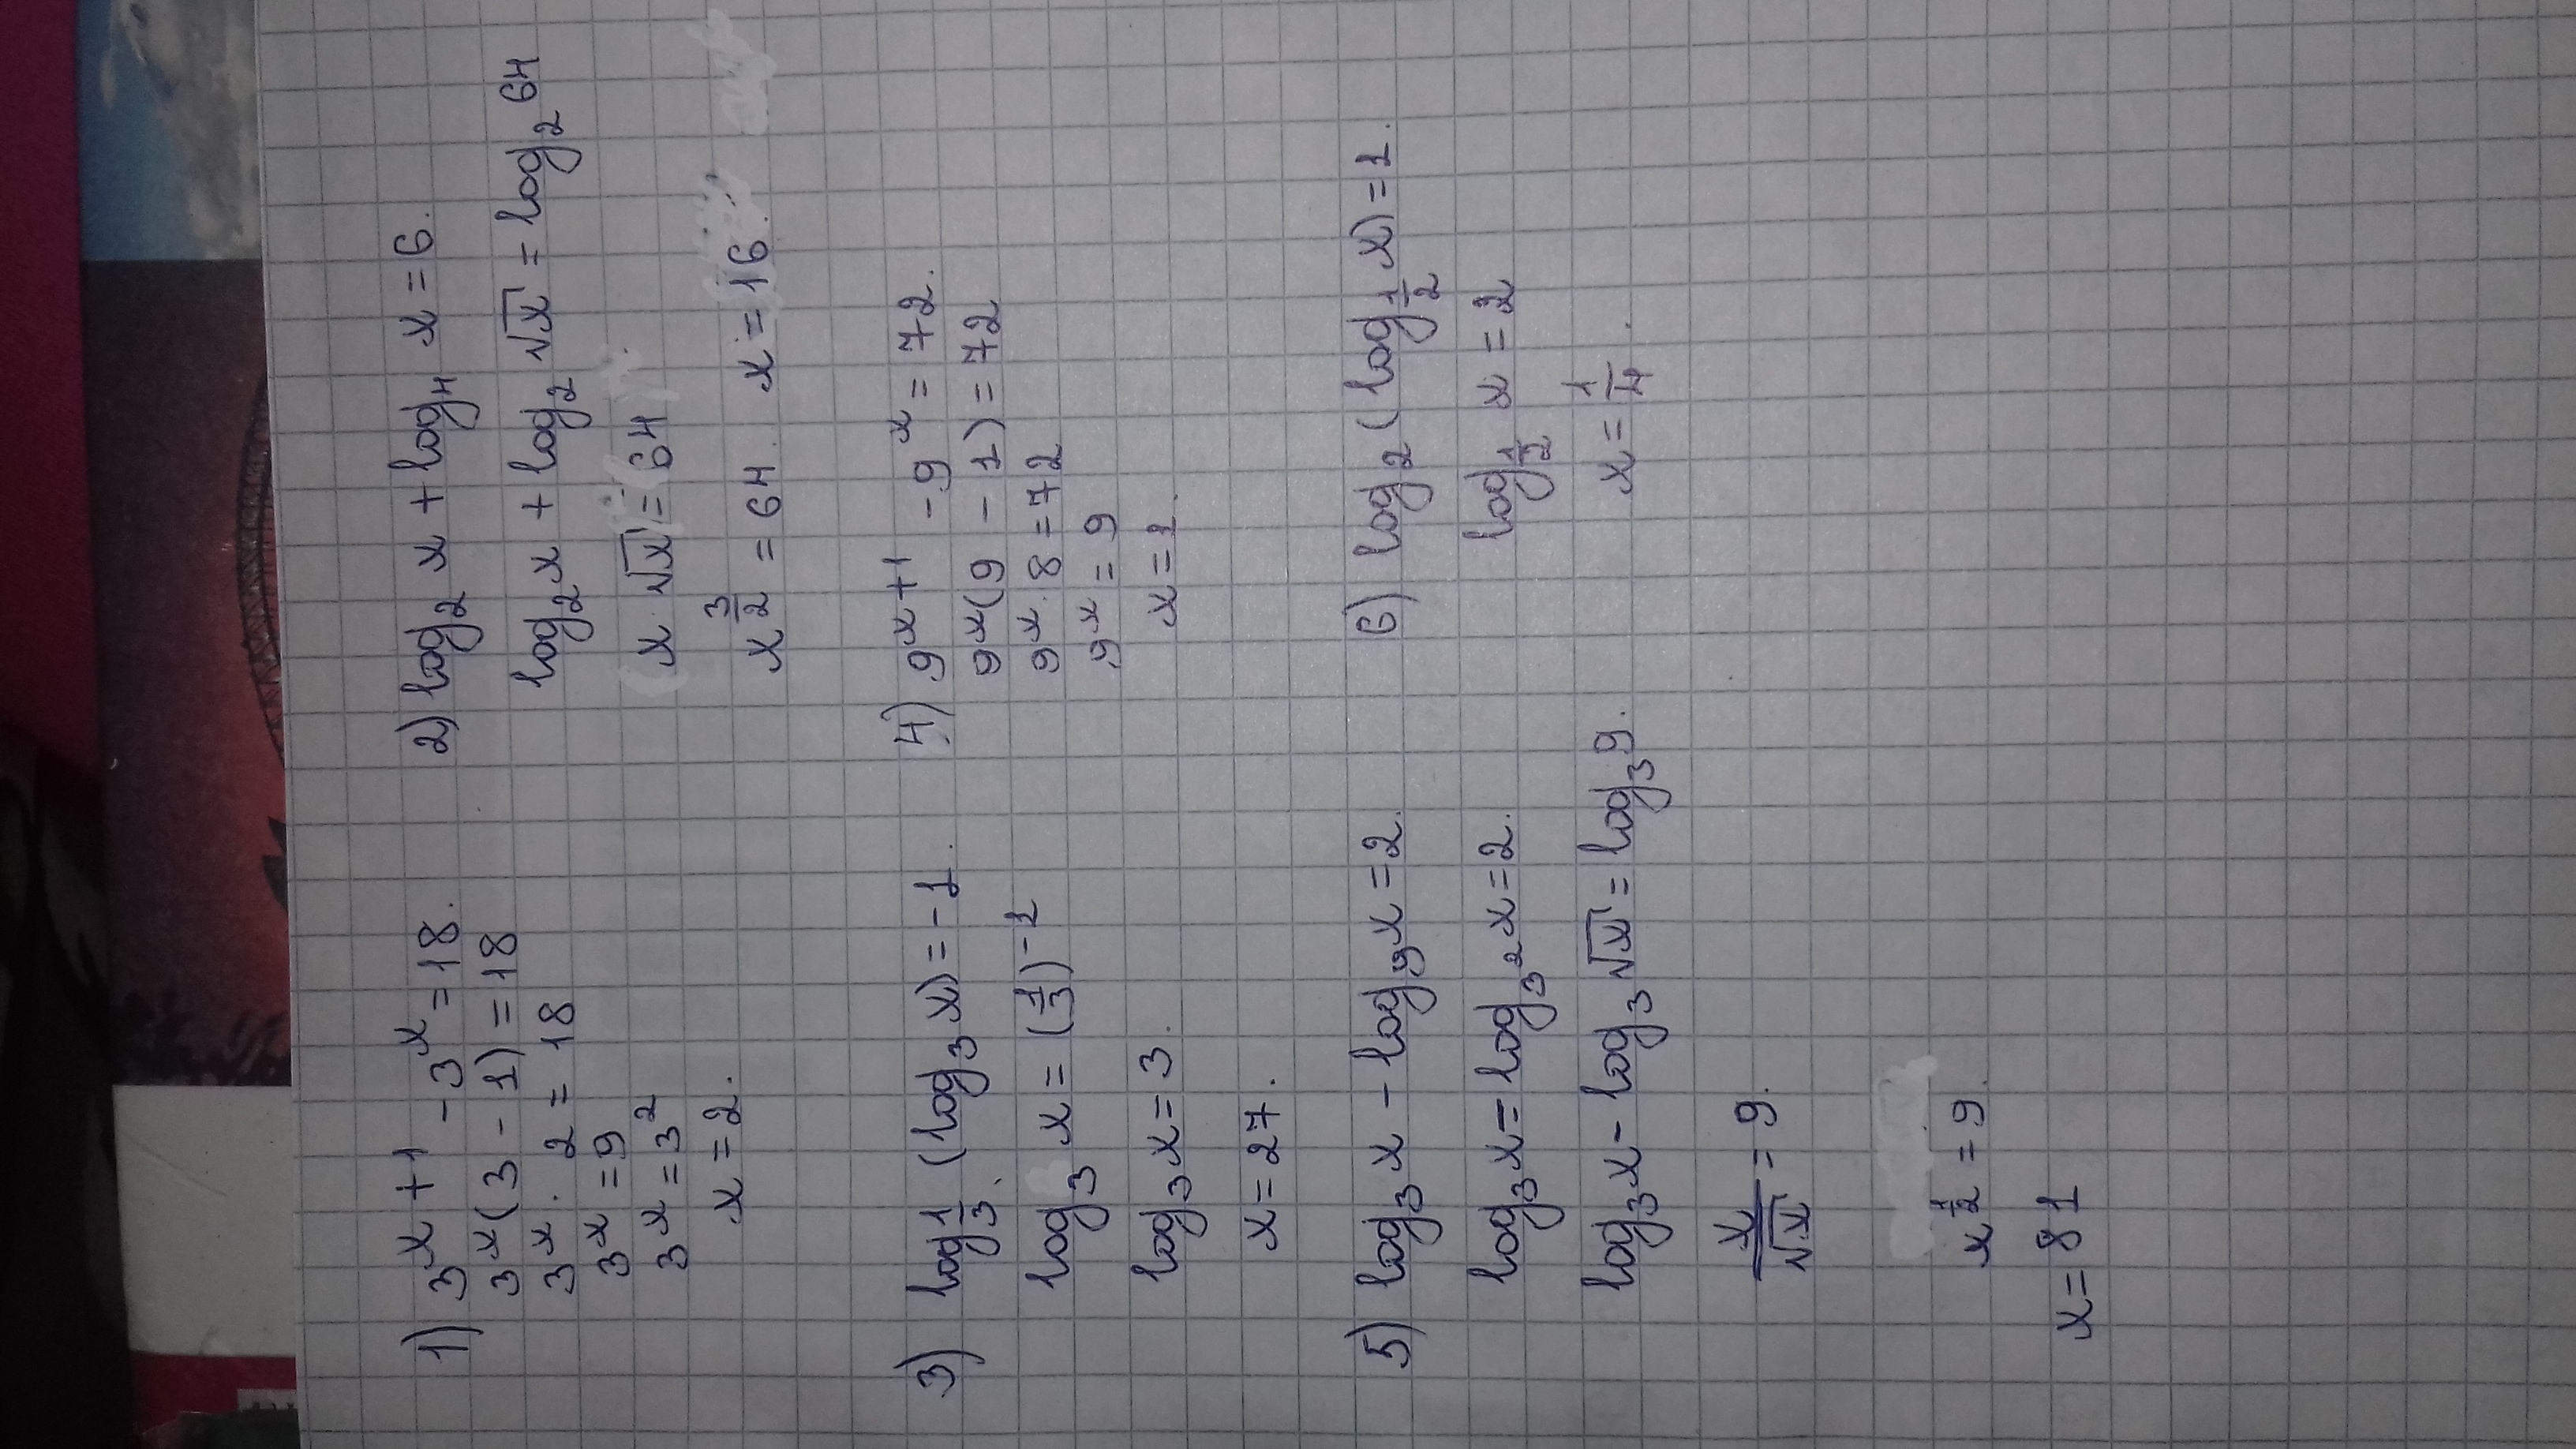 1) 3^x+1 - 3^x = 18.
3^x(3 - 1) = 18
3^x · 2 = 18
3^x = 9
3^x = 3^2
x = 2.
2) log_2 x + log_4 x = 6.
log_2 x + log_2 √x = log_2 64
x · √x = 64
x^(3/2) = 64. x = 16.
3) log_(1/3) (log_3 x) = -1.
log_3 x = (1/3)^-1
log_3 x = 3.
x = 27.
4) 9^x+1 - 9^x = 72.
9^x(9 - 1) = 72
9^x · 8 = 72
9^x = 9
x = 1.
5) log_3 x - log_9 x = 2.
log_3 x = log_3^2 x = 2.
log_3 x - log_3 √x = log_3 9.
x/√x = 9.
x^(1/2) = 9.
x = 81
6) log_2 (log_(1/2) x) = 1.
log_(1/2) x = 2
x = 1/4.